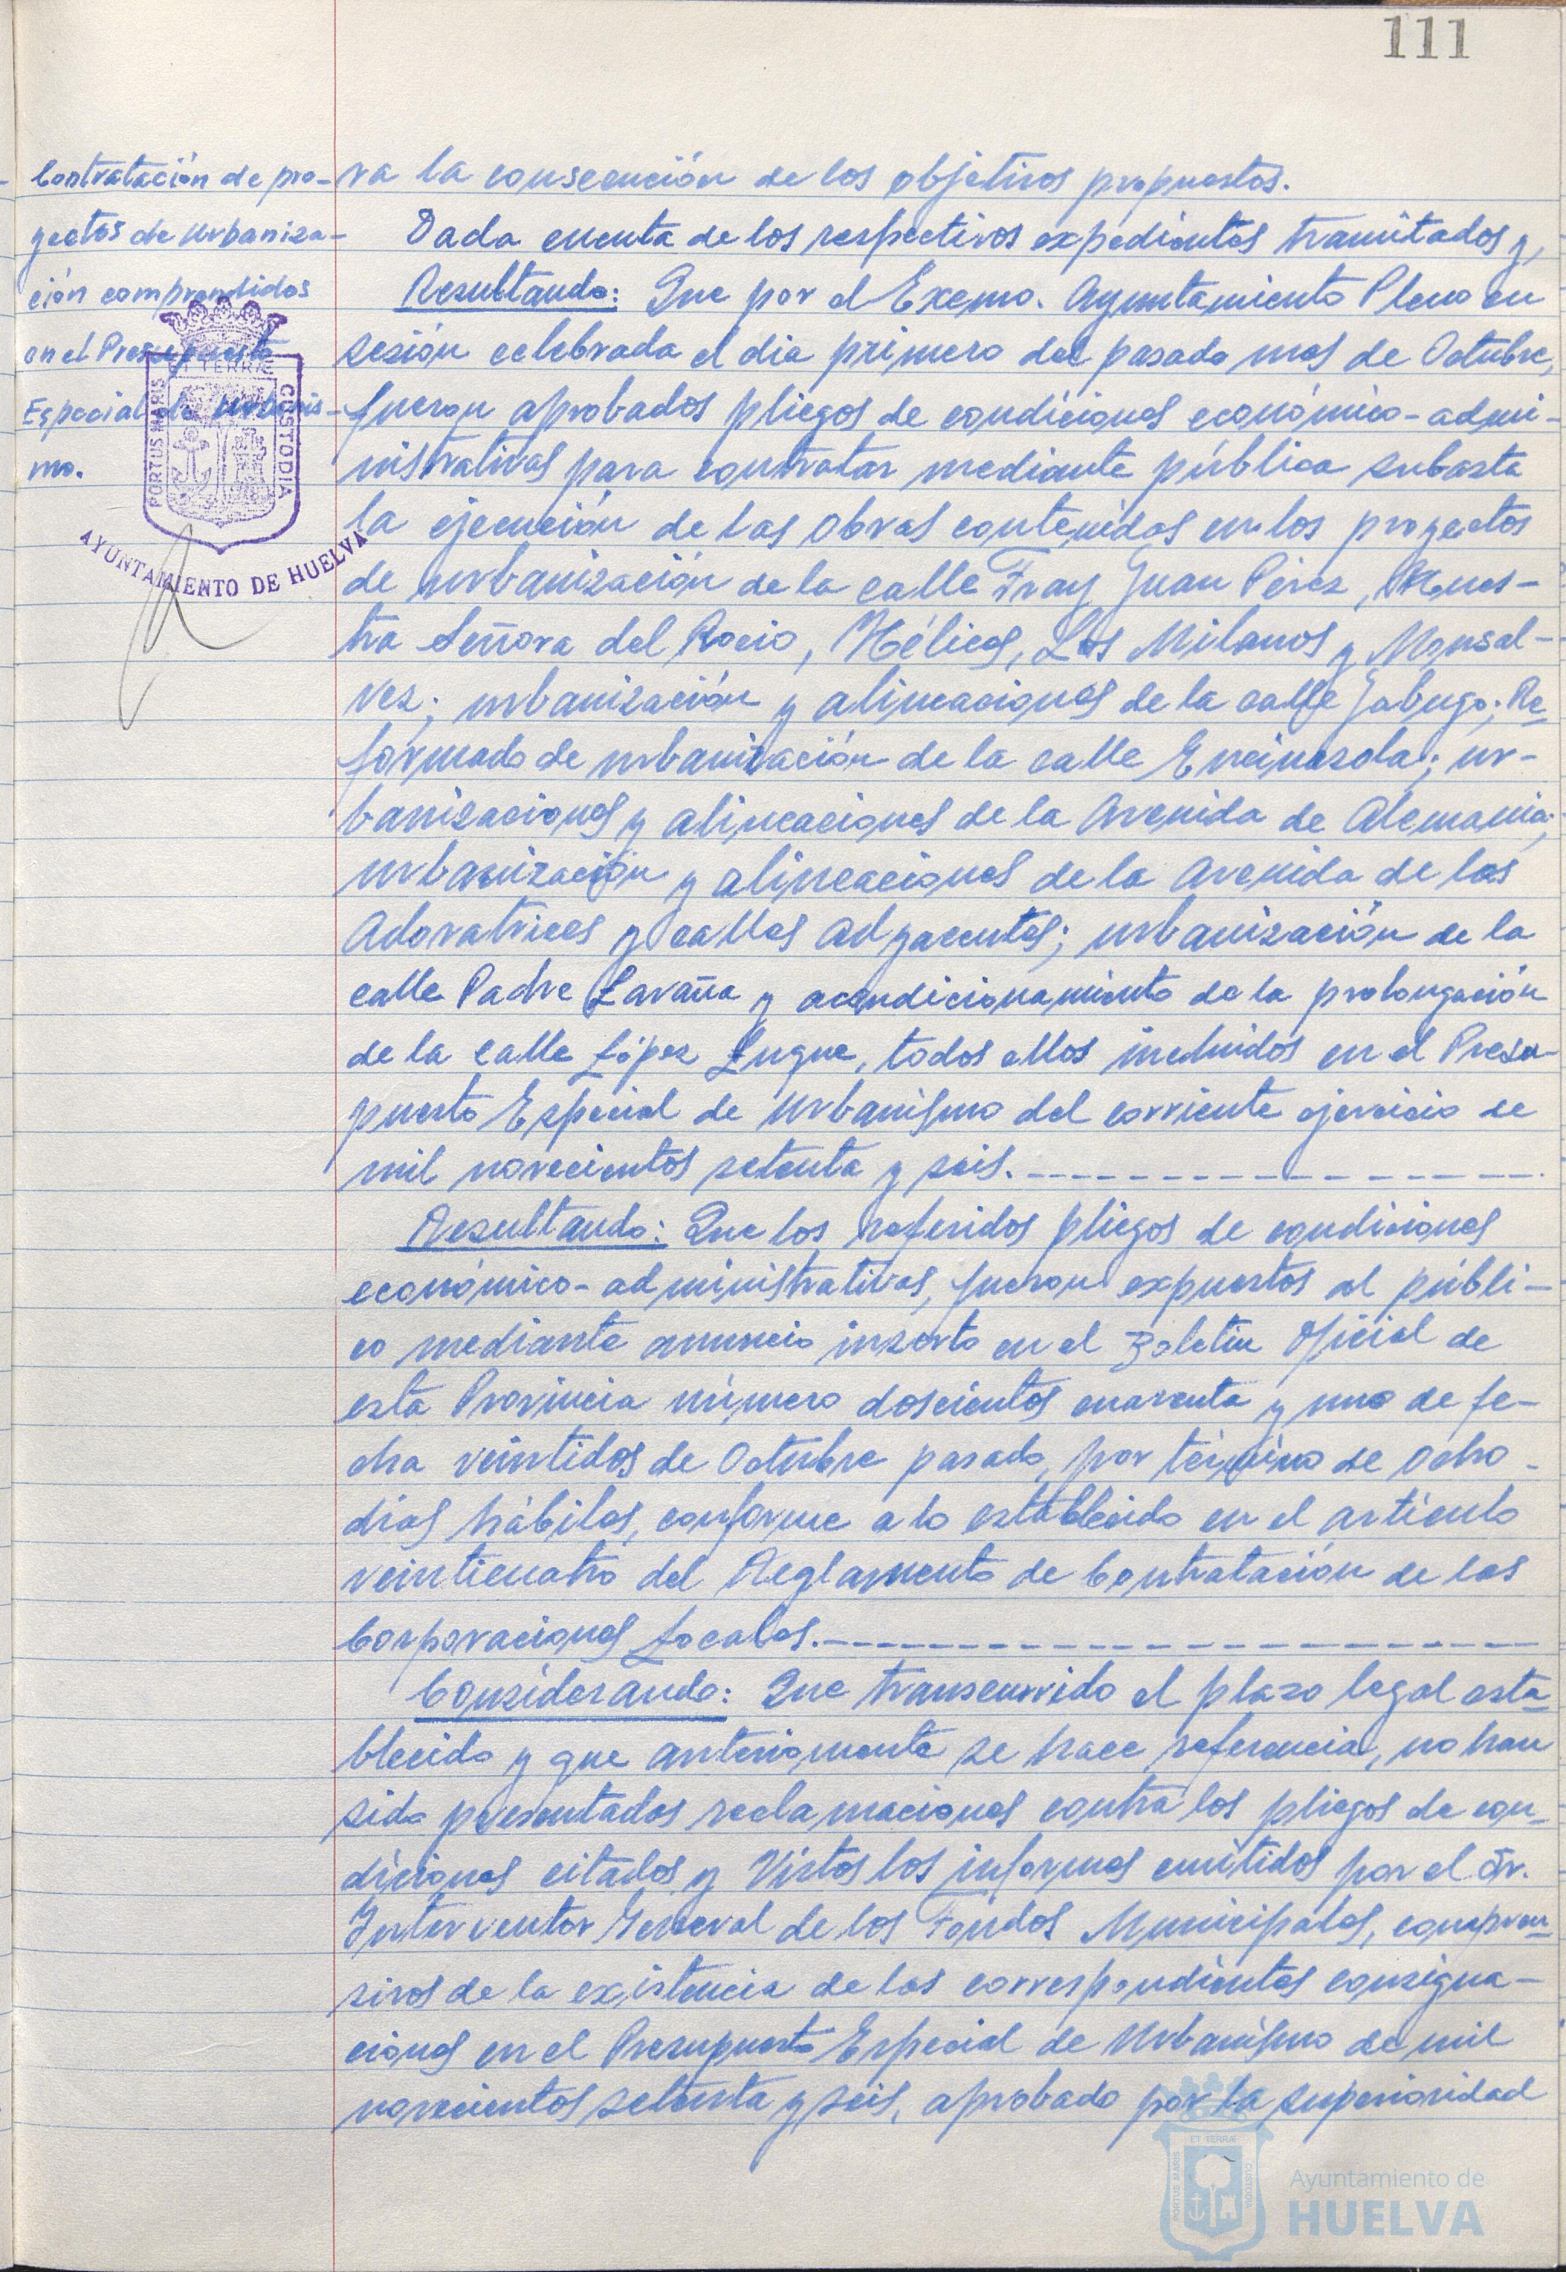 111
Contratación de pro-
yectos de Urbaniza-
ción comprendidos
en el Presupuesto
Especial de Urbanis-
mo.
ET TERRÆ
PORTUS MARIS
CUSTODIA
AYUNTAMIENTO DE HUELVA
ra la consecución de los objetivos propuestos.
Dada cuenta de los respectivos expedientes tramitados y,
Resultando: Que por el Excmo. Ayuntamiento Pleno en
sesión celebrada el dia primero del pasado mes de Octubre,
fueron aprobados pliegos de condiciones económico-admi-
nistrativas para contratar mediante pública subasta
la ejecución de las obras contenidas en los proyectos
de urbanización de la calle Fray Juan Pérez, Nues-
tra Señora del Rocio, Hélices, Los Milanos y Monsal-
vez; urbanización y alineaciones de la calle Jabugo; Re-
formado de urbanización de la calle Encinasola; ur-
banizaciones y alineaciones de la Avenida de Alemania;
urbanización y alineaciones de la Avenida de las
Adoratrices y calles adyacentes; urbanización de la
calle Padre Laraña y acondicionamiento de la prolongación
de la calle López Luque, todos ellos incluidos en el Presu-
puesto Especial de Urbanismo del corriente ejercicio de
mil novecientos setenta y seis.
Resultando: Que los referidos pliegos de condiciones
económico-administrativas, fueron expuestos al públi-
co mediante anuncio inserto en el Boletin Oficial de
esta Provincia número doscientos cuarenta y uno de fe-
cha veintidos de Octubre pasado, por término de ocho
dias hábiles, conforme a lo establecido en el articulo
veinticuatro del Reglamento de Contratación de las
Corporaciones Locales.
Considerando: Que transcurrido el plazo legal esta-
blecido y que anteriomente se hace referencia, no han
sido presentadas reclamaciones contra los pliegos de con-
diciones citados y Vistos los informes emitidos por el Sr.
Interventor General de los Fondos Municipales, compren-
sivos de la existencia de las correspondientes consigna-
ciones en el Presupuesto Especial de Urbanismo de mil
novecientos setenta y seis, aprobado por la superioridad
ET TERRÆ
PORTUS MARIS
CUSTODIA
Ayuntamiento de
HUELVA